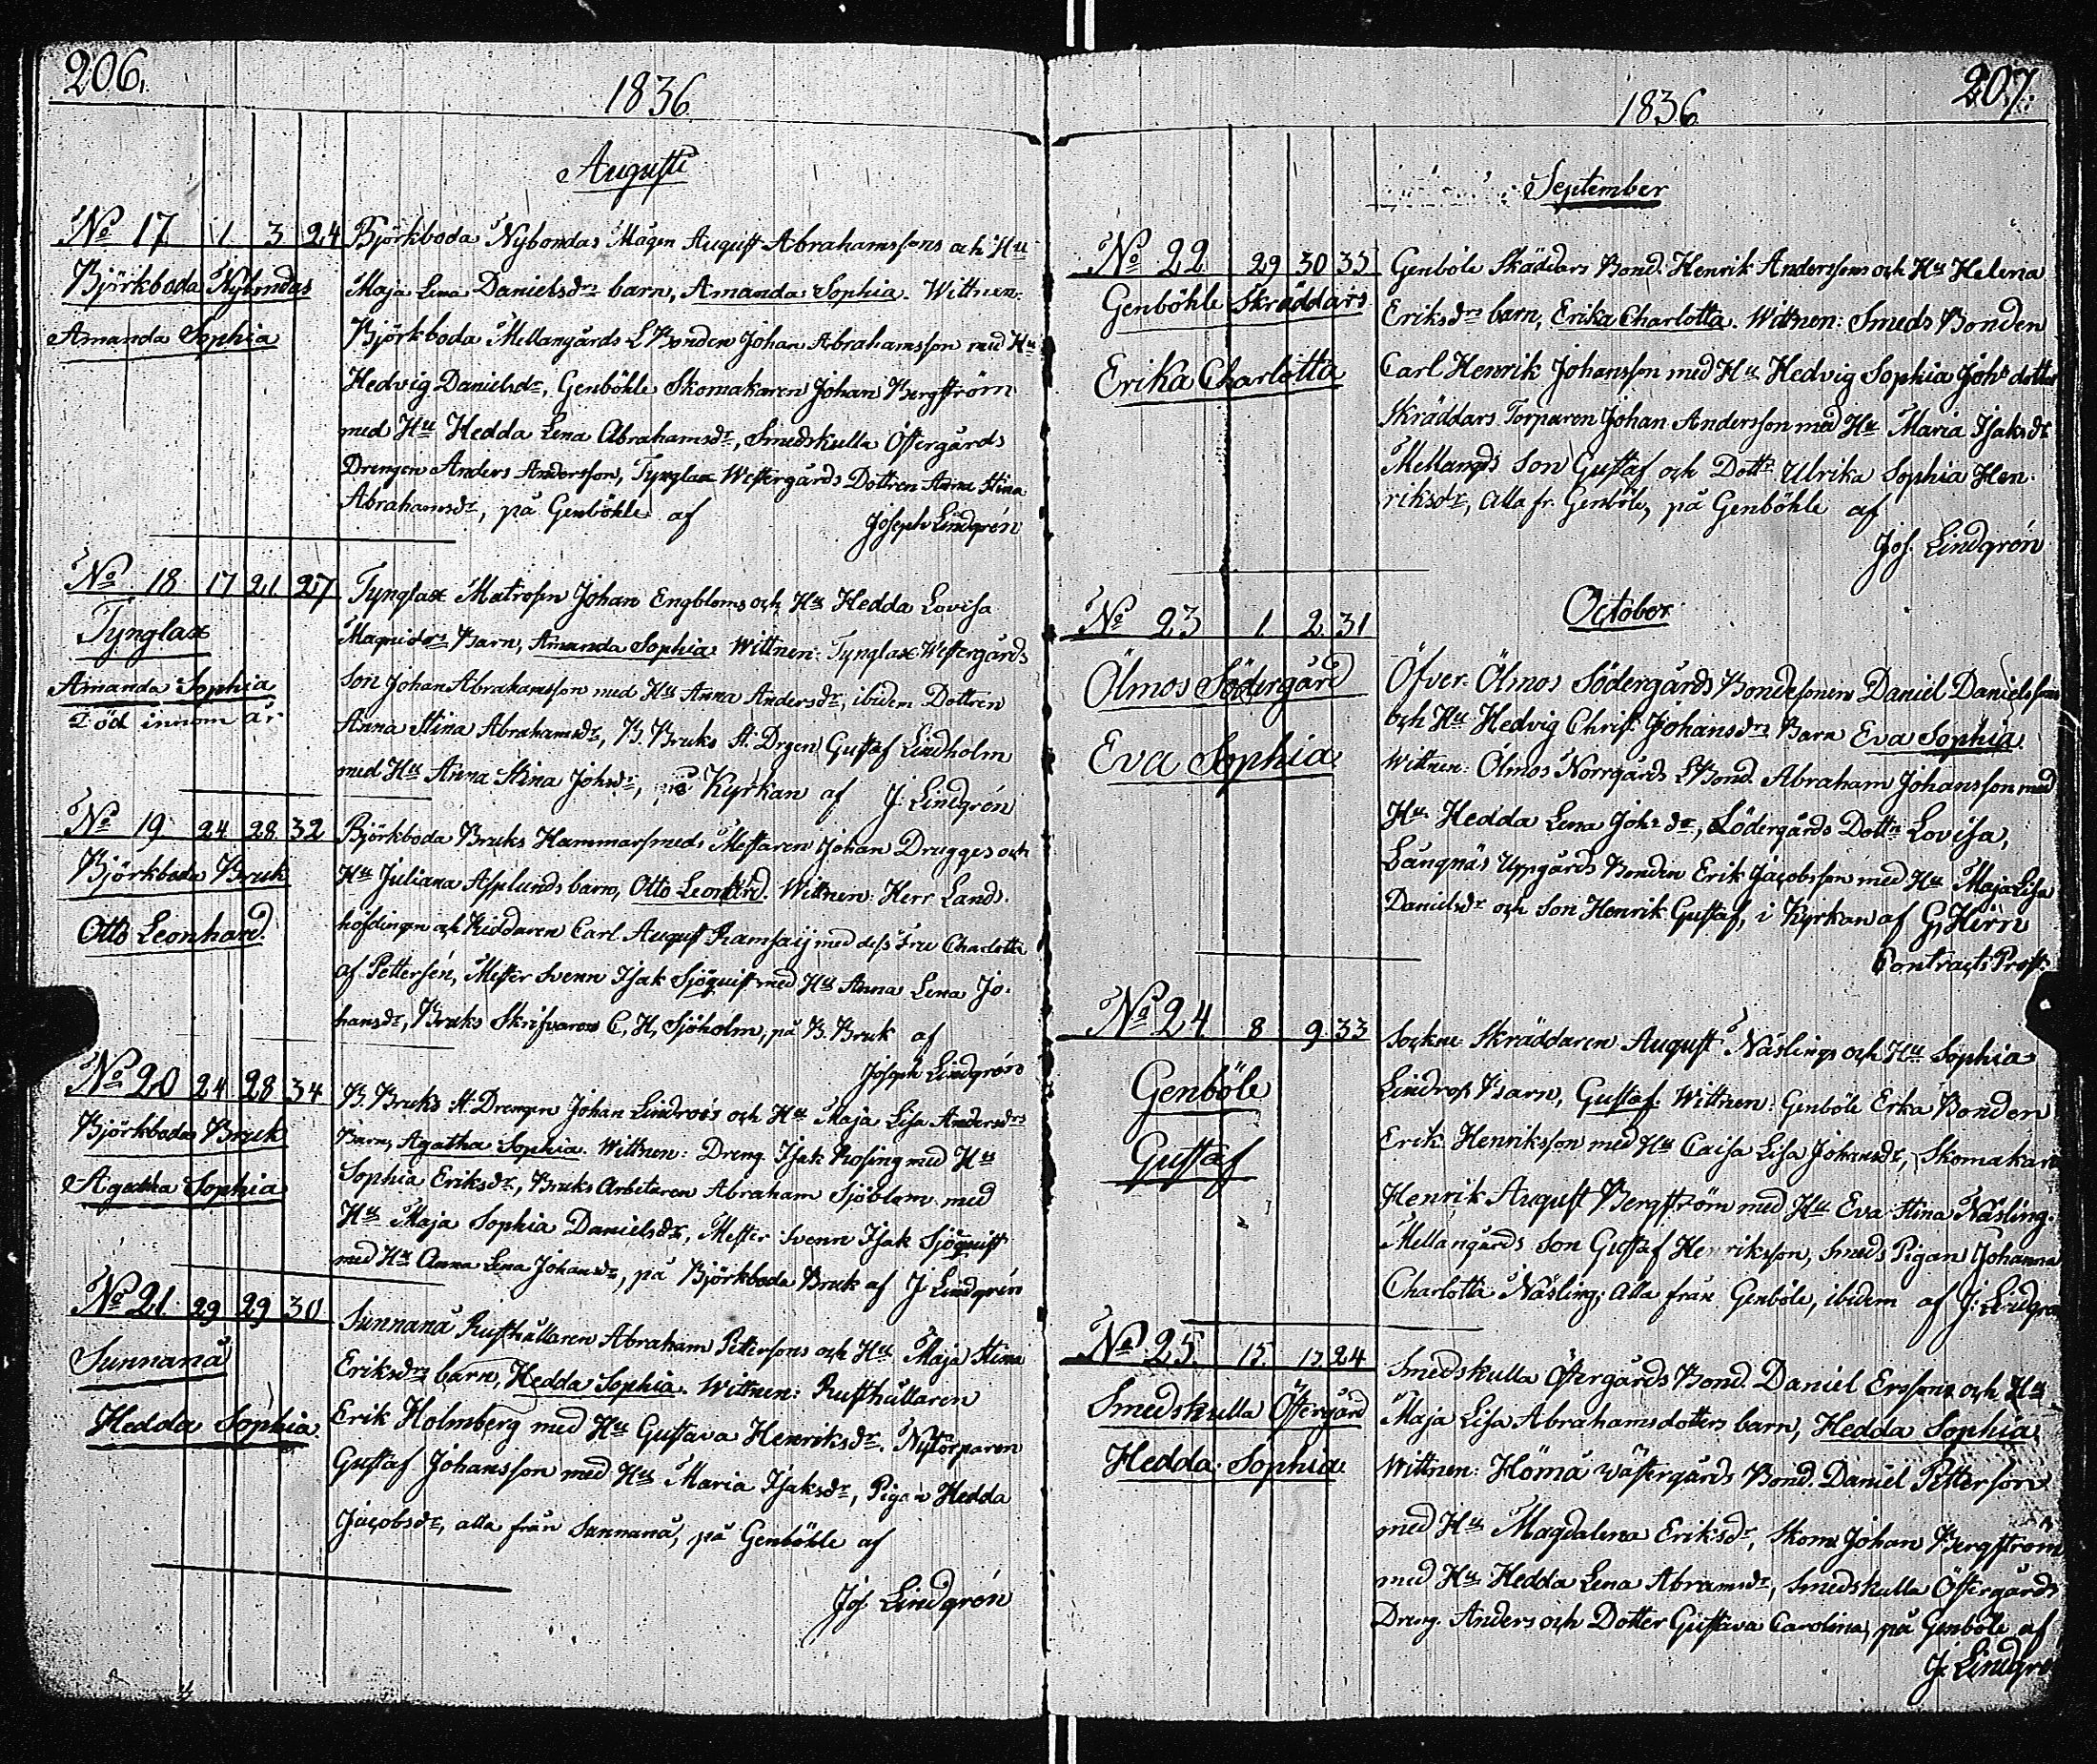 206.
1836.
Augusti
No 17. 1 3 24
Björkboda Nybondas
Amanda Sophia
Björkboda Nybondas Mågen August Abrahamssons och Hu
Maja Lena Danielsdrs barn, Amanda Sophia. Wittnen:
Björkboda Mellangårds LBonden Johan Abrahamsson med Hu
Hedvig Danielsdr, Genböhle Skomakaren Johan Bergström
med Hu Hedda Lena Abrahamsdr, Smedskulla Östergårds
Drengen Anders Andersson, Tynglax Westergårds Dottren Anna Stina
Abrahamsdr, på Genböhle af
Joseph Lindgrén
No 18 17 21 27
Tynglax
Amanda Sophia
Död innom år
Tynglax Matrosen Johan Engbloms och Hu Hedda Lovisa
Magnidrs Barn, Amanda Sophia. Wittnen: Tynglax Westergårds
Son Johan Abrahamsson med Hu Anna Andersdr, ibidem Dottren
Anna Stina Abrahamsdr, B. Bruks St. Drgen Gustaf Lindholm
med Hu Anna Stina Johsdr, i Kyrkan af J. Lindgrén
No 19 24 28 32
Björkboda Bruk
Otto Leonhard.
Björkboda Bruks Hammarsmeds Mestaren Johan Drugges och
Hu Juliana Asplunds barn, Otto Leonhard. Wittnen: Herr Lands.
höfdingen och Riddaren Carl August Ramsaij med dess Fru Charlotta
af Pettersén, Mester Svenn Isak Sjöquist med Hu Anna Lena Jo-
hansdr, Bruks Skrifvaren C, H, Sjöholm, på B. Bruk af
Joseph Lindgrén
No 20 24 28 34
Björkboda Bruk
Agatha Sophia
B. Bruks St. Drengen Johan Lindroos och Hu Maja Lisa Andersdrs
Barn, Agatha Sophia. Wittnen: Dreng. Isak Rosing med Hu
Sophia Eriksdr, Bruks Arbetaren Abraham Sjöblom med
Hu Maja Sophia Danielsdr, Mester Svenn Isak Sjöquist
med Hu Anna Lena Johansdr, på Björkboda Bruk af J Lindgrén
No 21. 29 29 30.
Sunnanå
Hedda Sophia
Sunnanå Rusthållaren Abraham Petterssons och Hu Maja Stina
Eriksdrs barn, Hedda Sophia. Wittnen: Rusthållaren
Erik Holmberg med Hu Gustava Henriksdr. Nytorparen
Gustaf Johansson med Hu Maria Isaksdr, Pigan Hedda
Jacobsdr, alla från Sunnanå, på Genböhle af
Jos. Lindgrén
207.
1836
September
No 22 29 30 35
Genböhle Skräddars
Erika Charlotta
Genböle Skäddars Bond. Henrik Anderssons och Hu Helena
Eriksdrs barn, Erika Charlotta. Wittnen: Smeds Bonden
Carl Henrik Johansson med Hu Hedvig Sophia Johs dotter
Skräddars Torparen Johan Andersson med Hu Maria Isaksdr
Mellangds Son Gustaf och Dottr Ulrika Sophia Hen-
riksdr, Alla fr. Genböle, på Genböhle af
Jos. Lindgrén
October
No 23 1 2. 31
Ölmos Södergård
Eva Sophia
Öfver Ölmos Södergårds Bondesonen Daniel Danielssons
och Hu Hedvig Christ. Johansdrs Barn Eva Sophia
Wittnen: Ölmos Norrgårds LBond. Abraham Johansson med
Hu Hedda Lena Johs dr, Södergårds Dottr Lovisa,
Långnäs Uppgårds Bonden Erik Jacobsson med Hu Maja Lisa
Danielsdr och Son Henrik Gustaf, i Kyrkan af G, Hirn
Contracts Prost.
No 24 8 9. 33
Genböle
Gustaf
Sockne Skräddaren August Näslings och Hu Sophia
Lindros Barn, Gustaf. Wittnen: Genböle Erka Bonden
Erik Henriksson med Hu Caisa Lisa Johansdr, Skomakare
Henrik August Bergström med Hu Eva Stina Näsling.
Mellangårds Son Gustaf Henriksson, Smeds Pigan Johanna
Charlotta Näsling; Alla från Genböle, ibidem af J. Lindgrén
No 25. 15. 17 24
Smedskulla Östergård
Hedda Sophia
Smedskulla Östergårds Bond. Daniel Erssons och Hu
Maja Lisa Abrahamsdotters barn, Hedda Sophia
Wittnen: Hömå Wästergårds Bond. Daniel Petterson
med Hu Magdalena Eriksdr, Skom Johan Bergström
med Hu Hedda Lena Abramsdr, Smedskulla Östergårds
Dreng. Anders och Dotter Gustava Carolina, på Genböle af
J. Lindgré